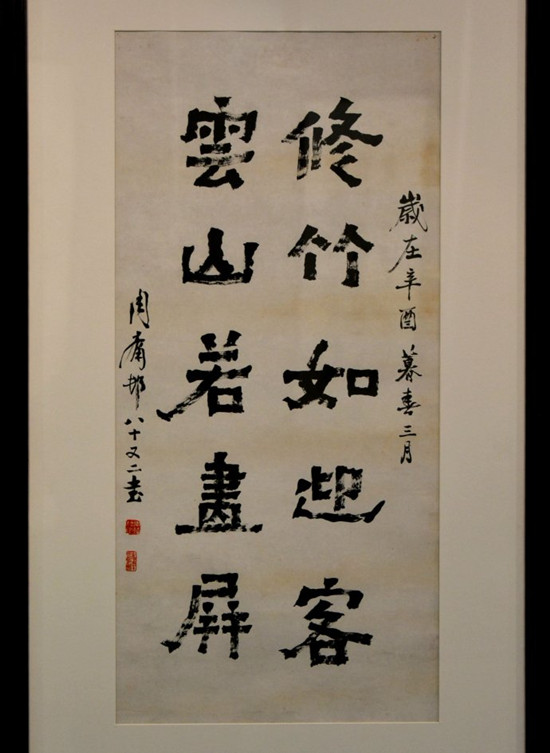 歲在辛酉暮春三月
修竹如迎客
雲山若畫屏
周庸邨八十又二書